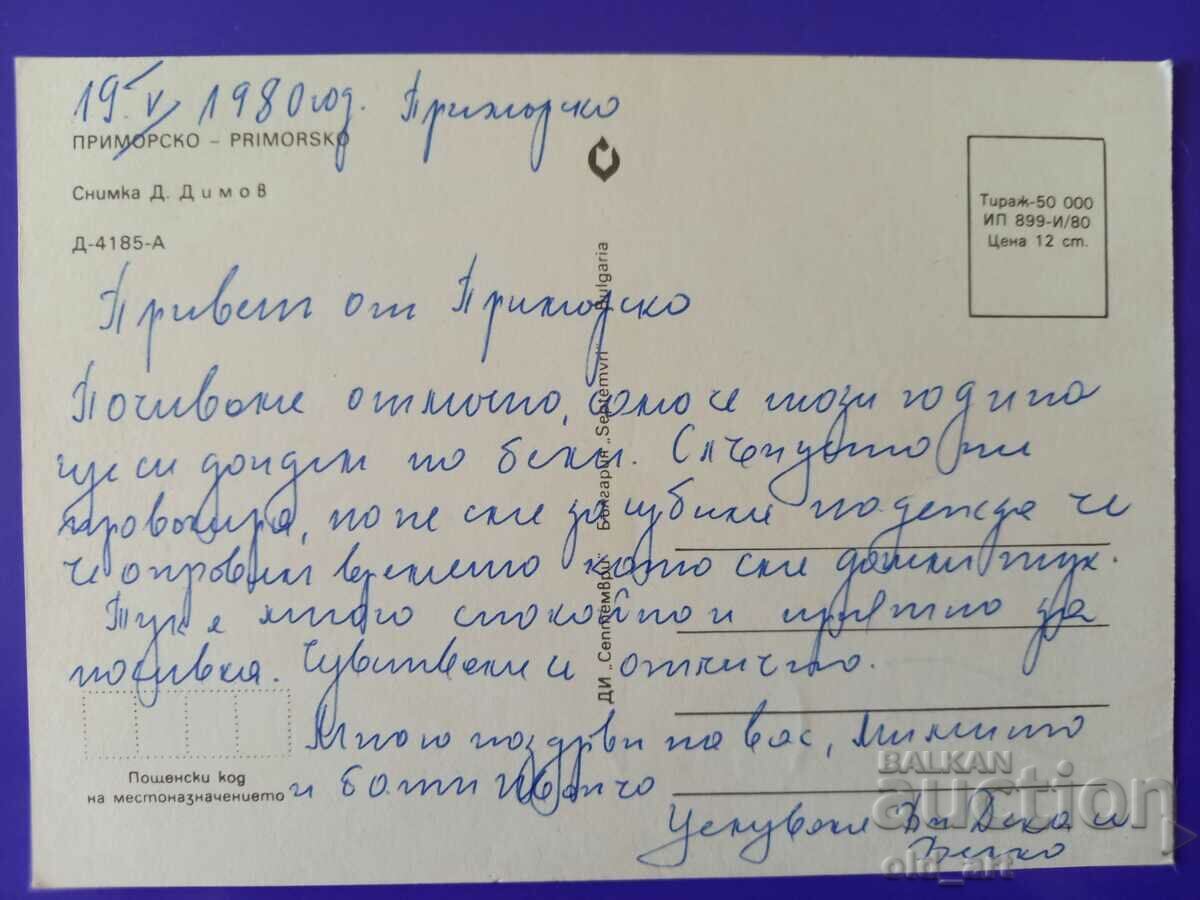 19 V 1980 год. Приморско
ПРИМОРСКО – PRIMORSKO
Снимка Д. Димов
Д-4185-А
Тираж-50 000
ИП 899-И/80
Цена 12 ст.
ДИ „Септември" България „Septemvri" Bulgaria
Привет от Приморско
Почиваме отлично, само че тази година
ще си дойдем по бели. Слънцето ни
провокира, но не сме загубили надежда че
че оправим времето като сме дошли тук.
Тук е много спокойно и приятно за
почивка. Чувстваме и отлично.
Много поздрави на вас, Милчето
и бати Иванчо
Целуваме Ви
Пощенски код
на местоназначението
BALKAN
auction
old_art